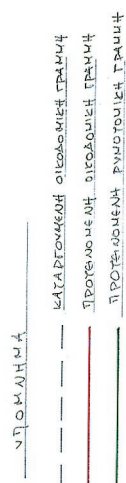 ΥΠΟΜΝΗΜΑ
ΚΑΤΑΡΓΟΥΜΕΝΗ ΟΙΚΟΔΟΜΙΚΗ ΓΡΑΜΜΗ
ΠΡΟΤΕΙΝΟΜΕΝΗ ΟΙΚΟΔΟΜΙΚΗ ΓΡΑΜΜΗ
ΠΡΟΤΕΙΝΟΜΕΝΗ ΡΥΜΟΤΟΜΙΚΗ ΓΡΑΜΜΗ